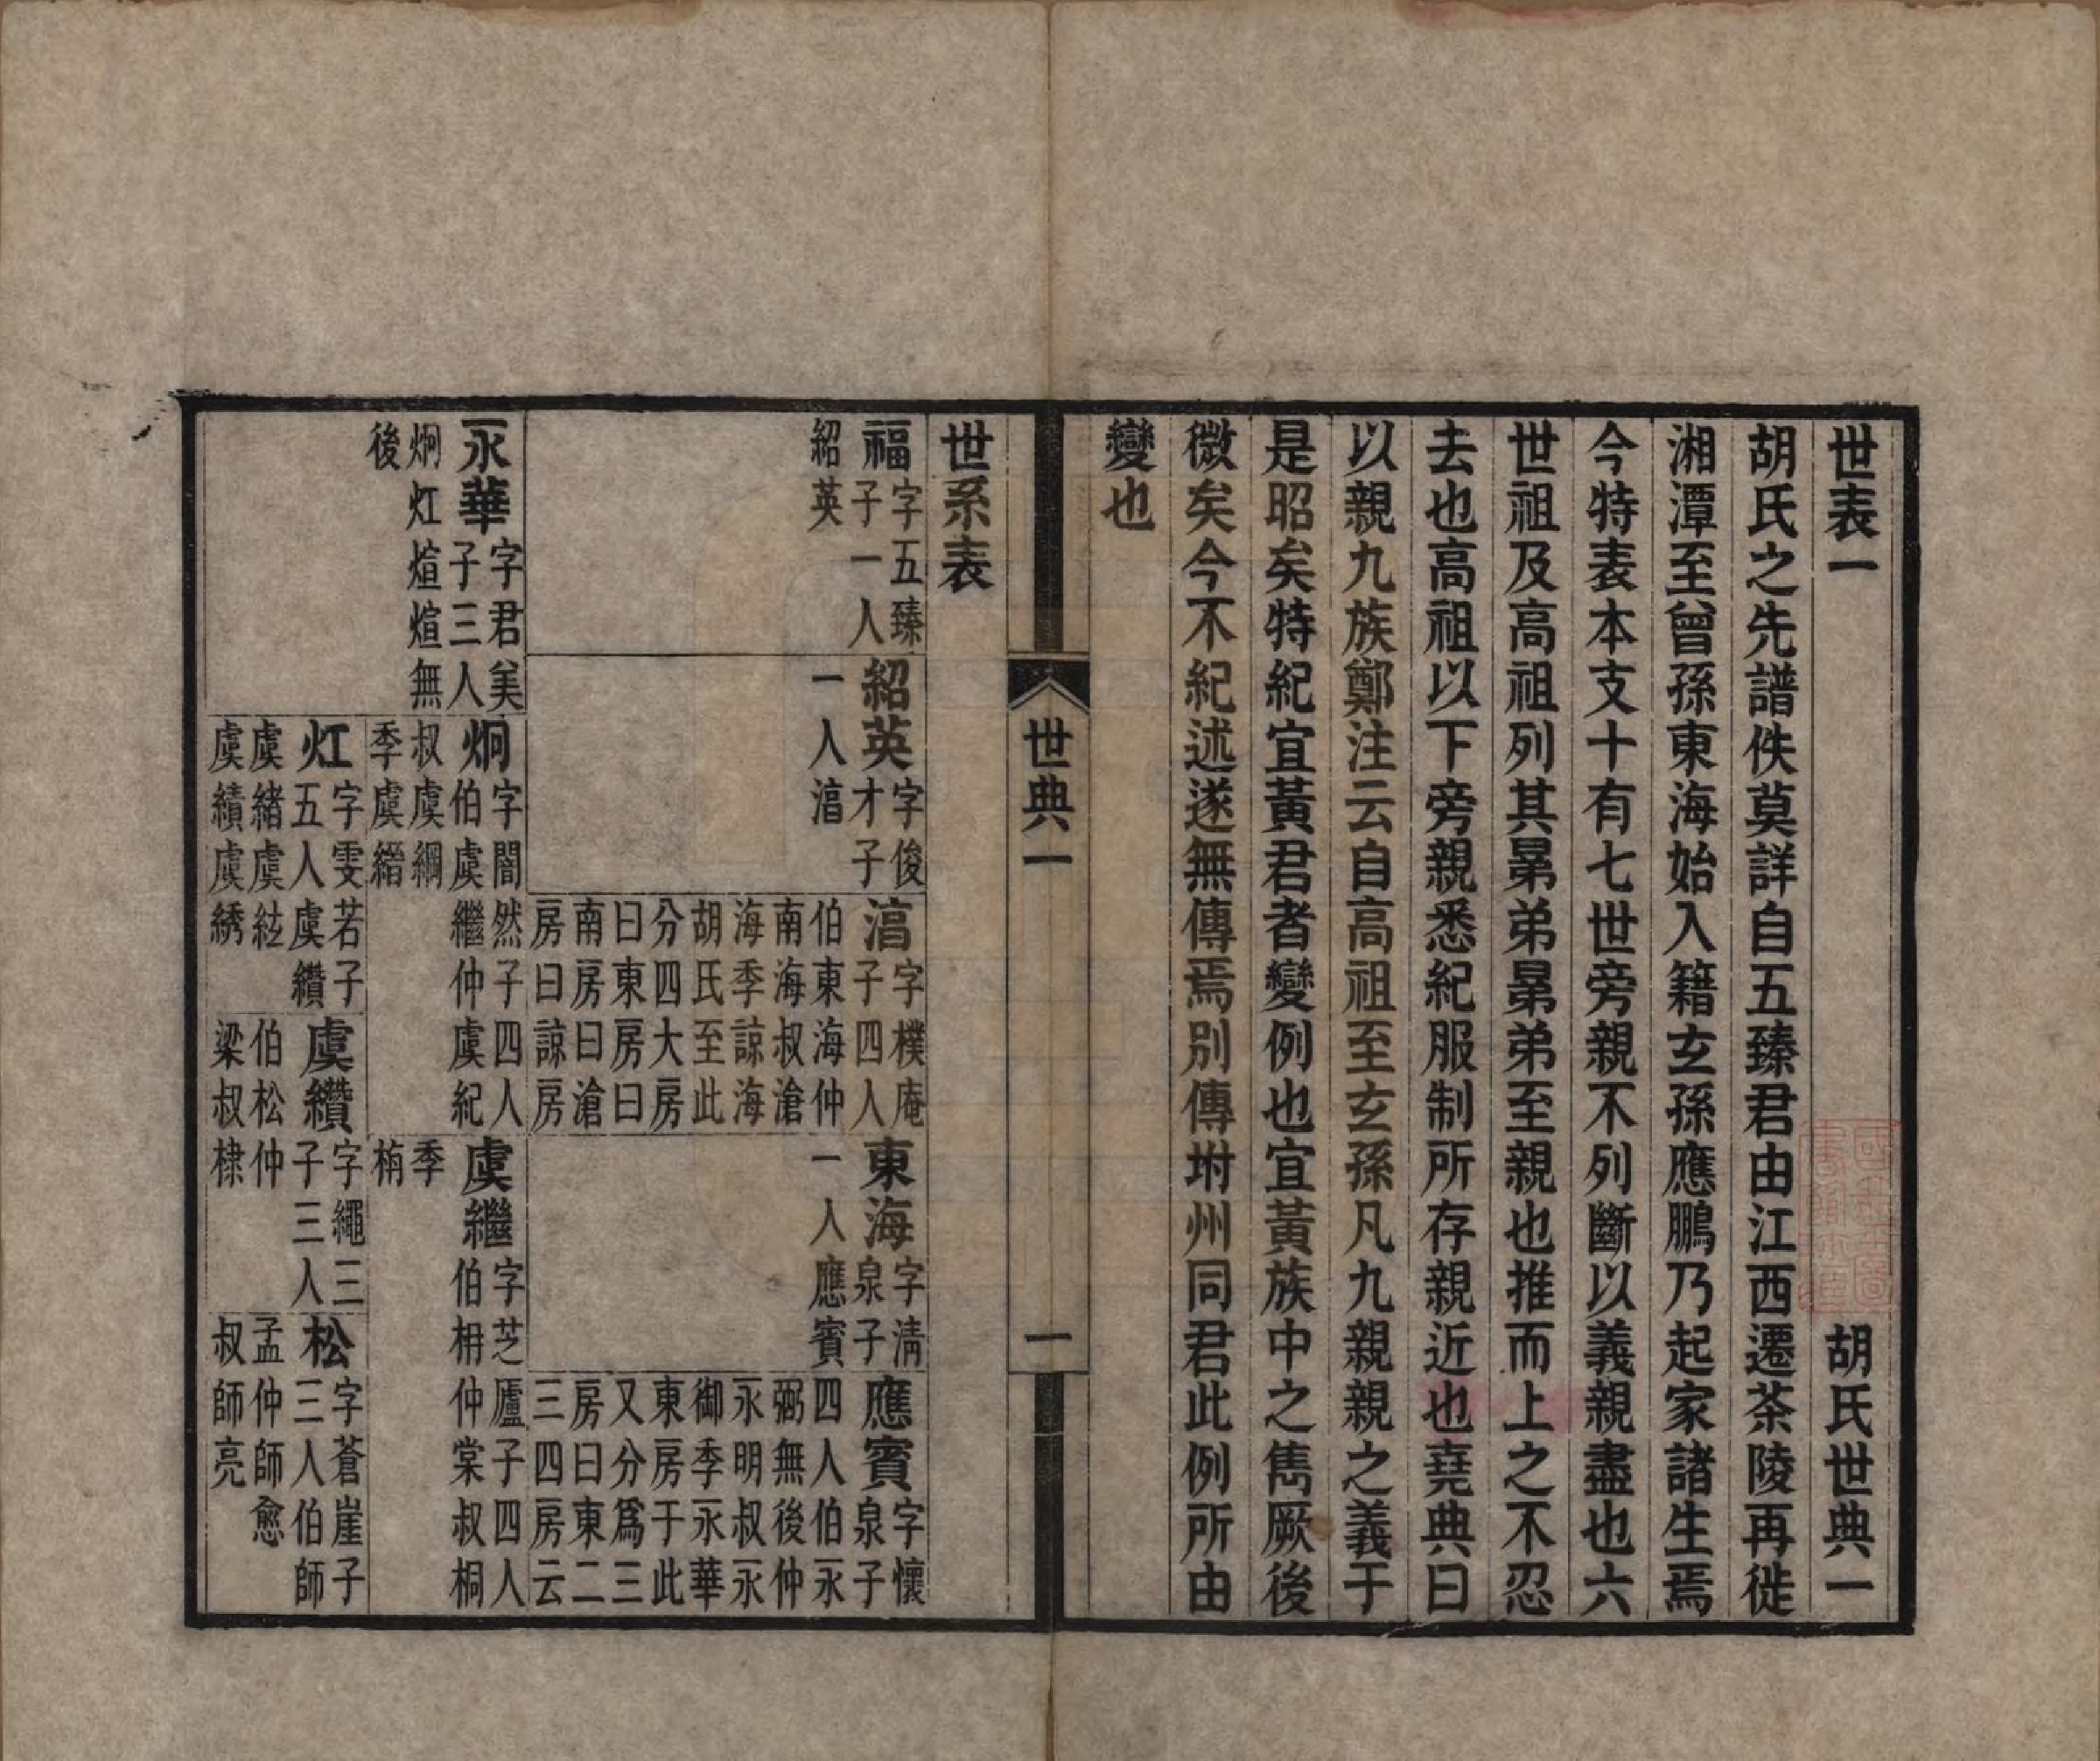 世表一　胡氏世典一
胡氏之先譜佚莫詳自五臻君由江西遷茶陵再徙
湘潭至曾孫東海始入籍玄孫應鵬乃起家諸生焉
今特表本支十有七世旁親不列斷以義親盡也六
世祖及高祖列其晜弟晜弟至親也推而上之不忍
去也高祖以下旁親悉紀服制所存親近也堯典曰
以親九族鄭注云自高祖至玄孫凡九親親之義于
是昭矣特紀宜黃君者變例也宜黃族中之雋厥後
微矣今不紀述遂無傳焉別傳坿州同君此例所由
變也
世典一
一
世系表
福
字五臻
子一人
紹英
紹英
字俊
才子
一人湻
湻
字樸庵
子四人
伯東海仲
南海叔滄
海季諒海
胡氏至此
分四大房
曰東房曰
南房曰滄
房曰諒房
東海
字清
泉子
一人應賓
應賓
字懷
泉子
四人伯永
弼無後仲
永明叔永
御季永華
東房于此
又分爲三
房曰東二
三四房云
永華
字君美
子三人
炯灴煊煊無
後
炯
字闇然子四人
伯虞繼仲虞紀
叔虞綱
季虞縉
虞繼
字芝廬子四人
伯枏仲棠叔桐
季
栯
灴
字雯若子
五人虞纘
虞緒虞紘
虞績虞綉
虞纘
字繩三
子三人
伯松仲
梁叔棣
松
字蒼崖子
三人伯師
孟仲師愈
叔師亮